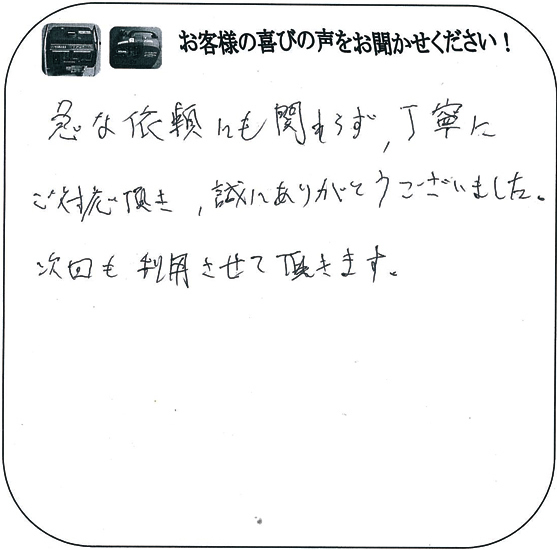 お客様の喜びの声をお聞かせください！
急な依頼にも関わらず、丁寧に
ご対応頂き、誠にありがとうございました。
次回も利用させて頂きます。